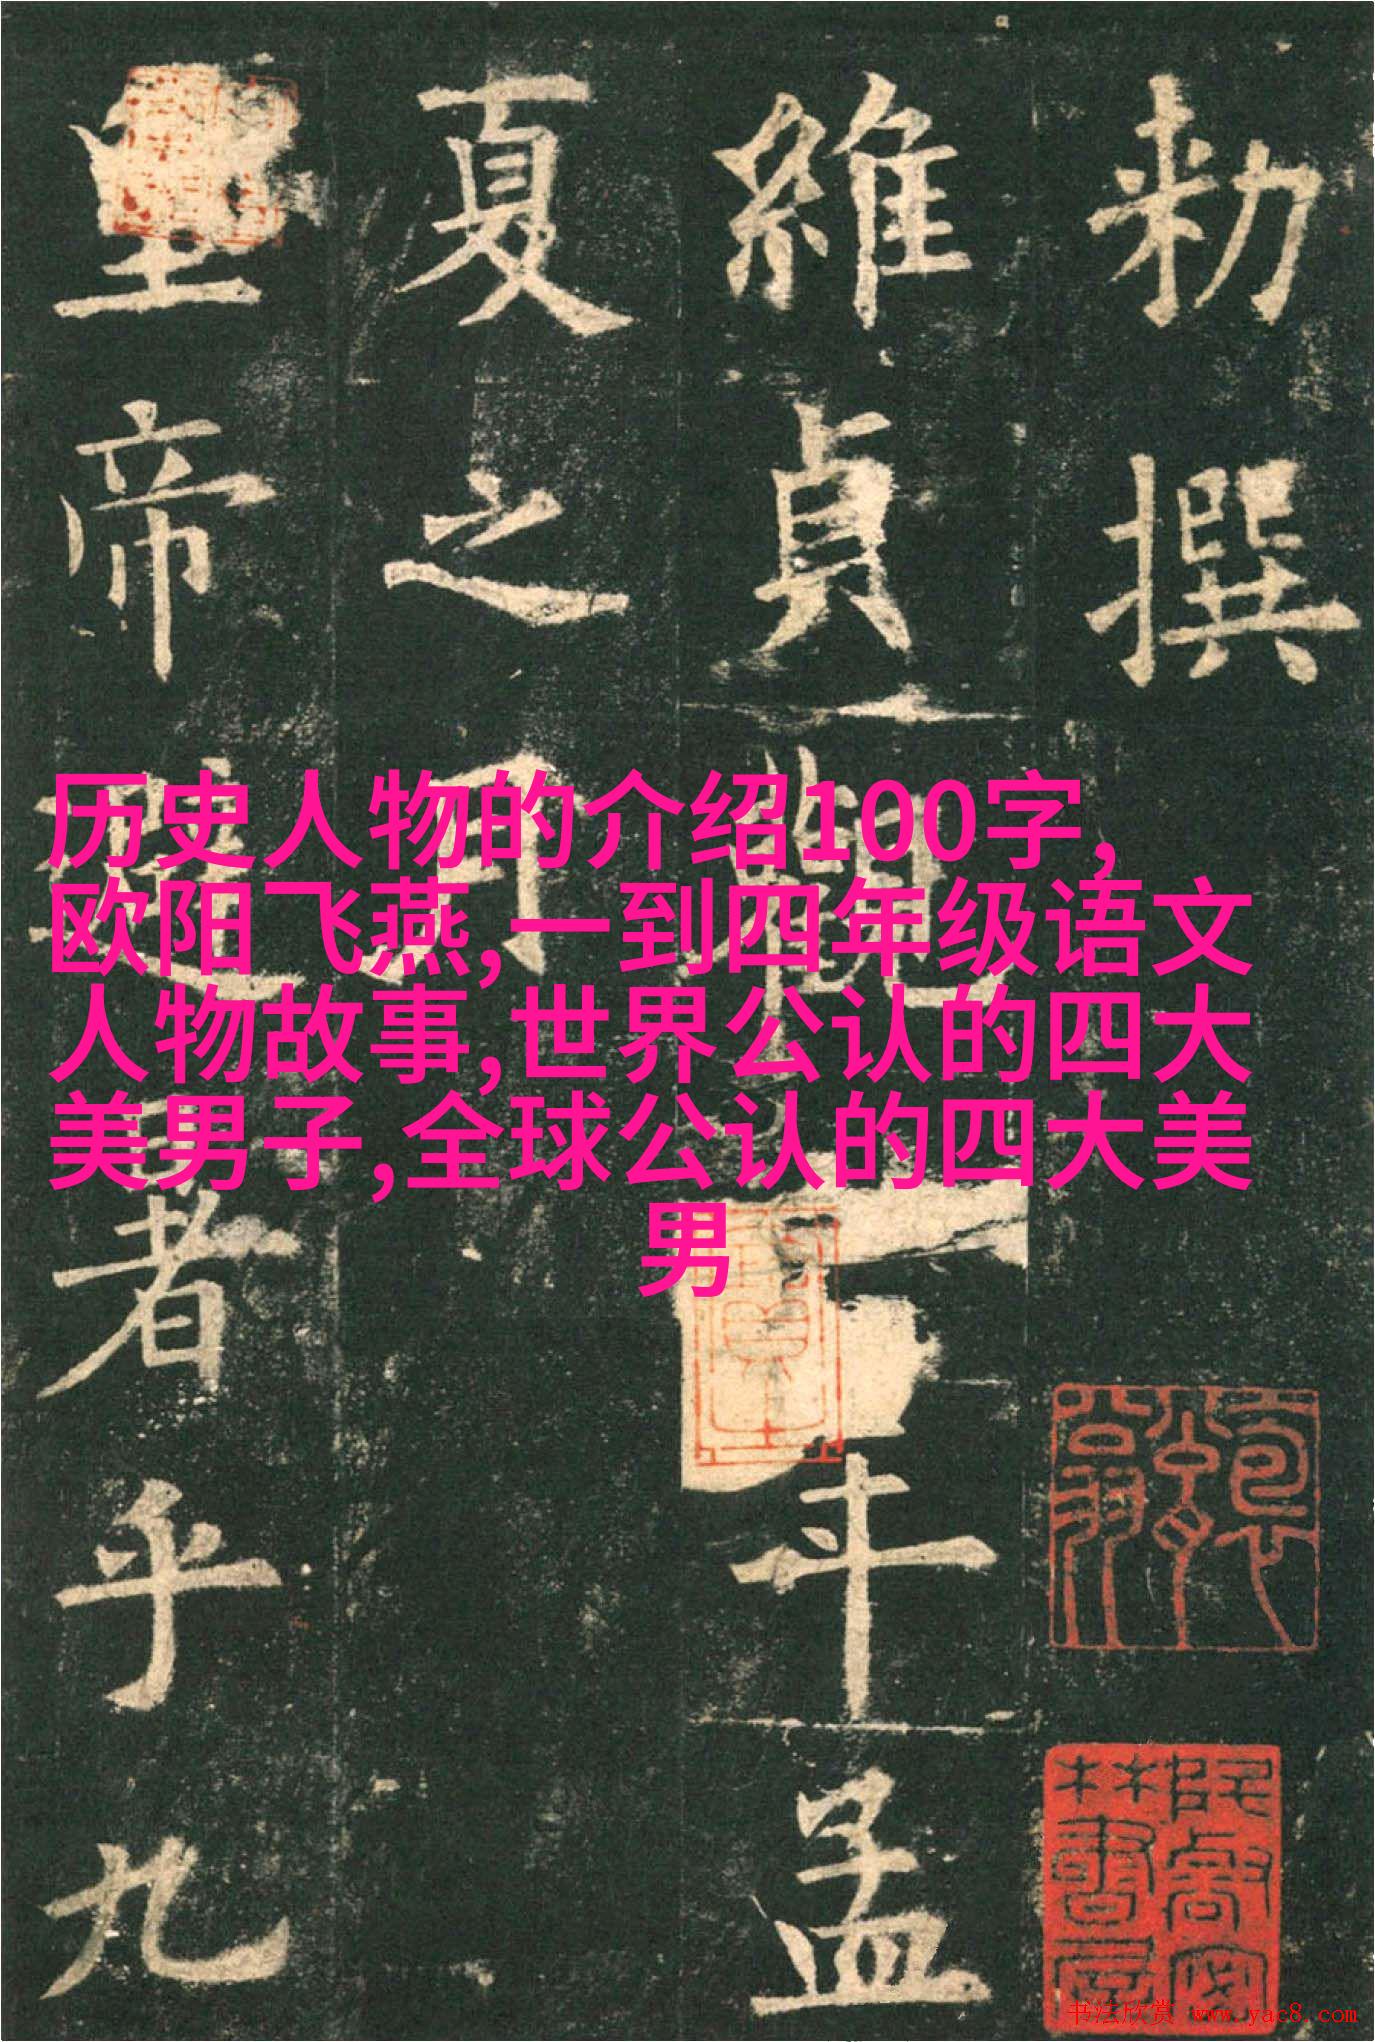 历史人物的介绍100字,
欧阳飞燕,一到四年级语文
人物故事,世界公认的四大
美男子,全球公认的四大美
男
勑撰
維貞觀
年孟
夏之月
皇帝避
者乎九
书法欣赏 www.yac8.com